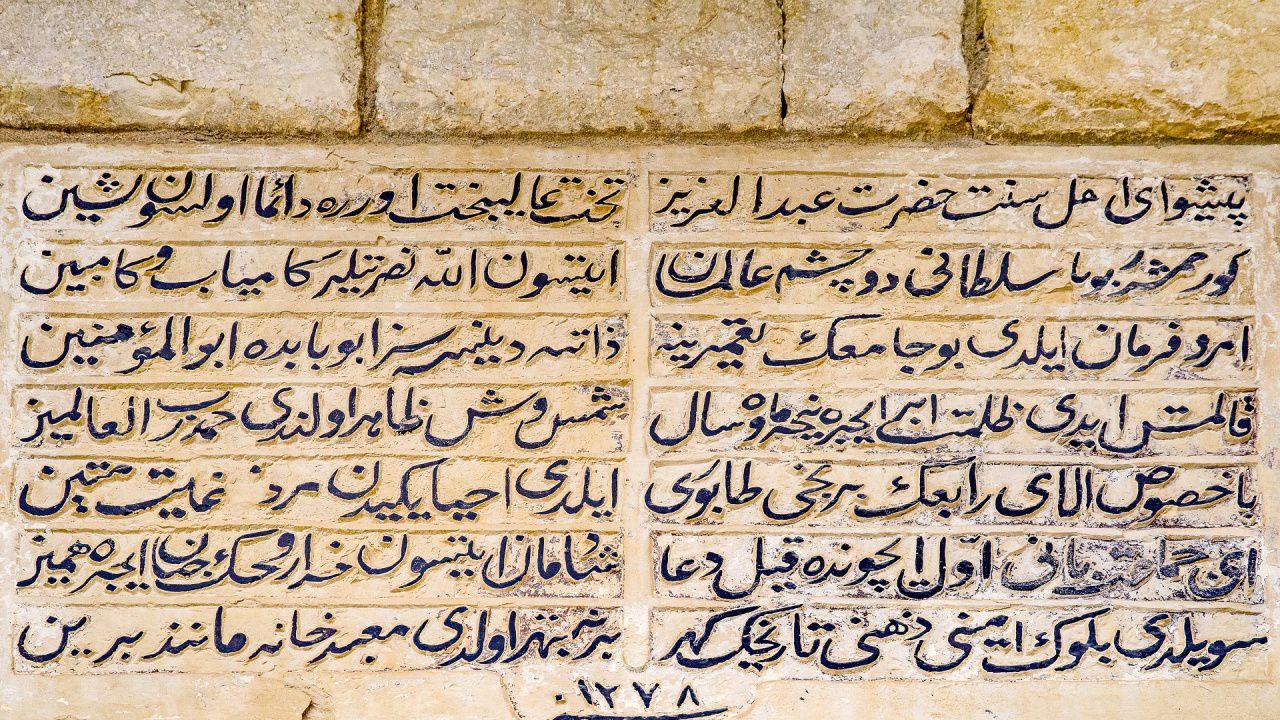 پیشوای اهل سنت حضرت عبد العزیز تخت عالیبخت اوزره دائما اولسون مشین
کورمشدر بویا سلطانی دو چشم عالمان ایتسون الله نصرتیلر کامیاب و کامبین
امر و فرمان ایلدی بو جامعک تعمیرینه ذاتنه دینسه سزا بو بابده ابو المؤمنین
قالمش ایدی ظلمت ایچره نیجه ماه و سال شمس وش ظاهر اولندی حمد رب العالمین
با خصوص الای رابعک برنجی طابوری ایلدی احیا یکیدن غایت متین
ای جماعت بانی اول ایچونده قیل دعا شادمان ایتسون خدا روحک جنان ایچره همین
سویلدی بلوک امینی ذهنی تاریخک کهر اولدی معبد خانه مانند برین
١٢٧٨